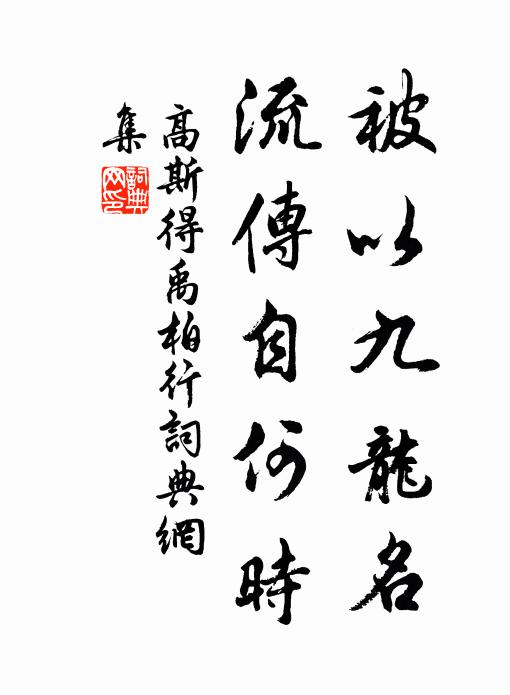 被以九龍名
流傳自何時
高斯得禹柏行詞典網
集
詞典
网印